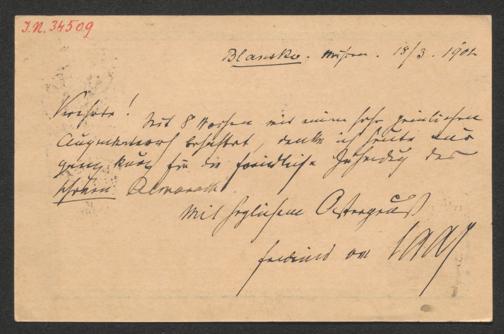 J.N. 34509
Blansko. Mähren. 18/3. 1901
Verehrte!
Seit 8 Wochen mit einem sehr peinlichen
behaftet, danke ich heute nur
ganz kurz für die freundliche des
schönen Almanach.
Mit herzlichem Ostergruß
Ferdinand von Saar